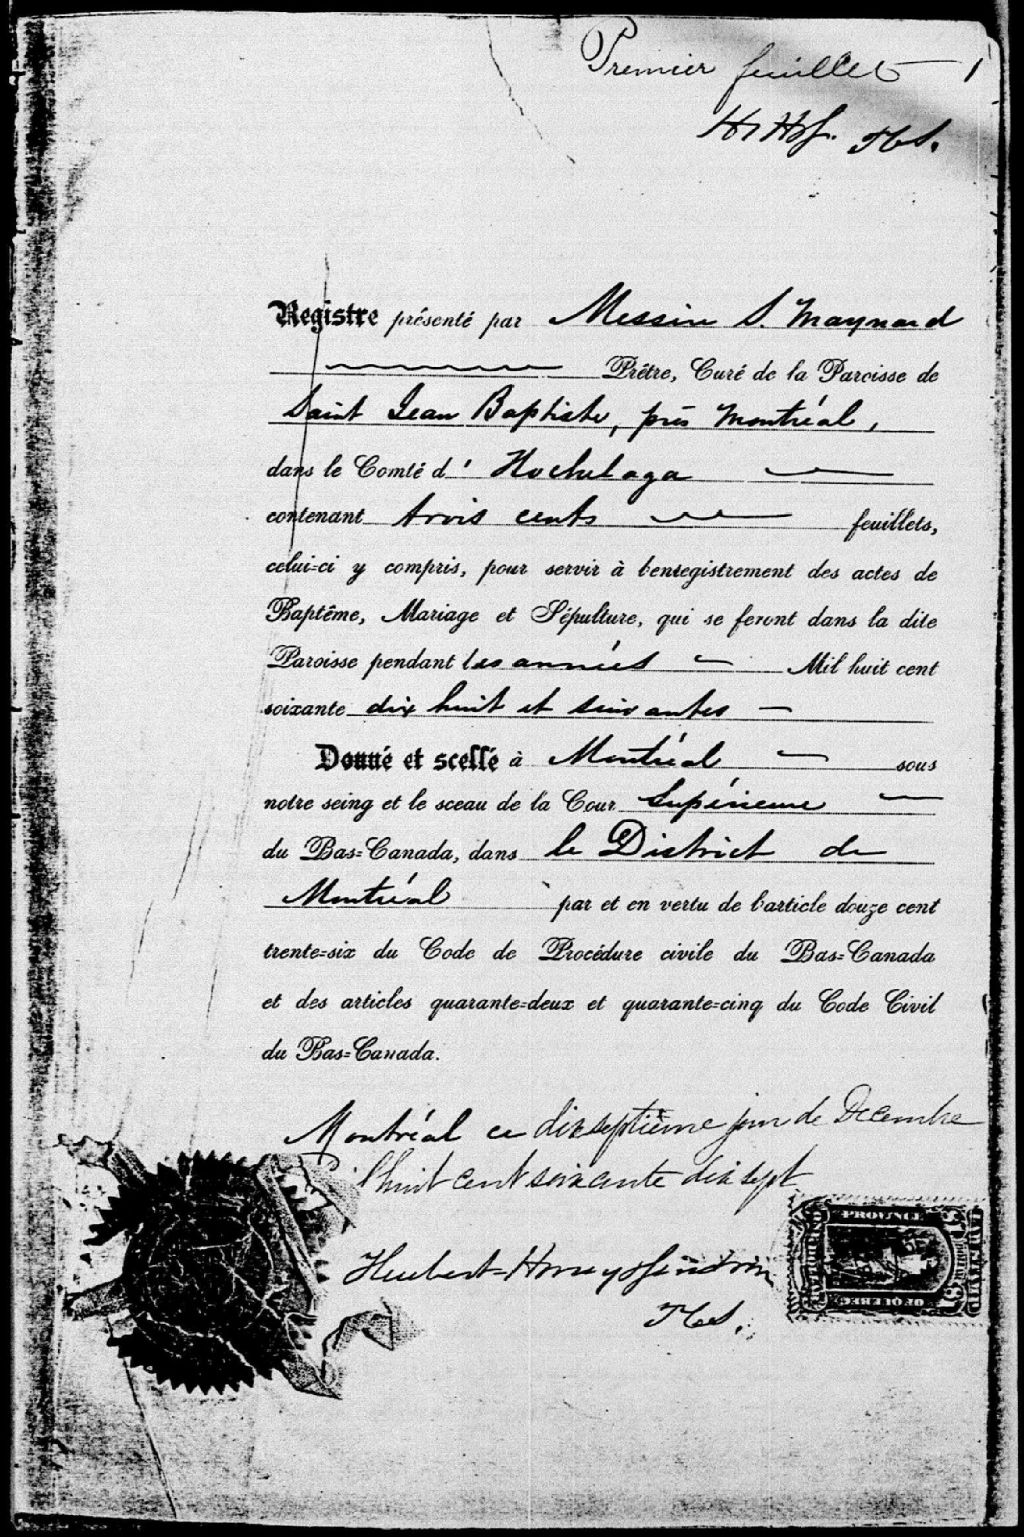 Premier feuillet — 1
HHH. PCS.
Registre présenté par Messire S. Maynard
Prêtre, Curé de la Paroisse de
Saint Jean Baptiste, près Montréal,
dans le Comté d' Hochelaga
contenant trois cents feuillets,
celui-ci y compris, pour servir à l'enregistrement des actes de
Baptême, Mariage et Sépulture, qui se feront dans la dite
Paroisse pendant les années Mil huit cent
soixante dix huit et suivantes
Donné et scellé à Montréal sous
notre seing et le sceau de la Cour Supérieure
du Bas-Canada, dans le District de
Montréal par et en vertu de l'article douze cent
trente-six du Code de Procédure civile du Bas-Canada
et des articles quarante-deux et quarante-cinq du Code Civil
du Bas-Canada.
Montréal ce dixseptième jour de Decembre
huit cent soixante dix sept